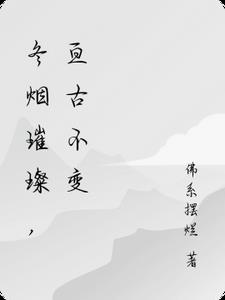 冬烟璀璨，
亘古不变
佛系摆 著